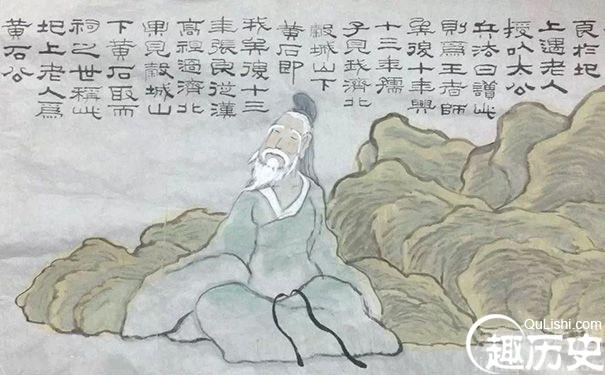 良於圯
上遇老人
授以太公
兵法曰讀此
則為王者師
矣後十年興
十三年孺
子見我濟北
穀城山下
黃石即
我矣後十三
年張良從漢
高祖過濟北
果見穀城山
下黃石取而
祠之世稱此
圯上老人為
黃石公
QuLishi.com
趣历史